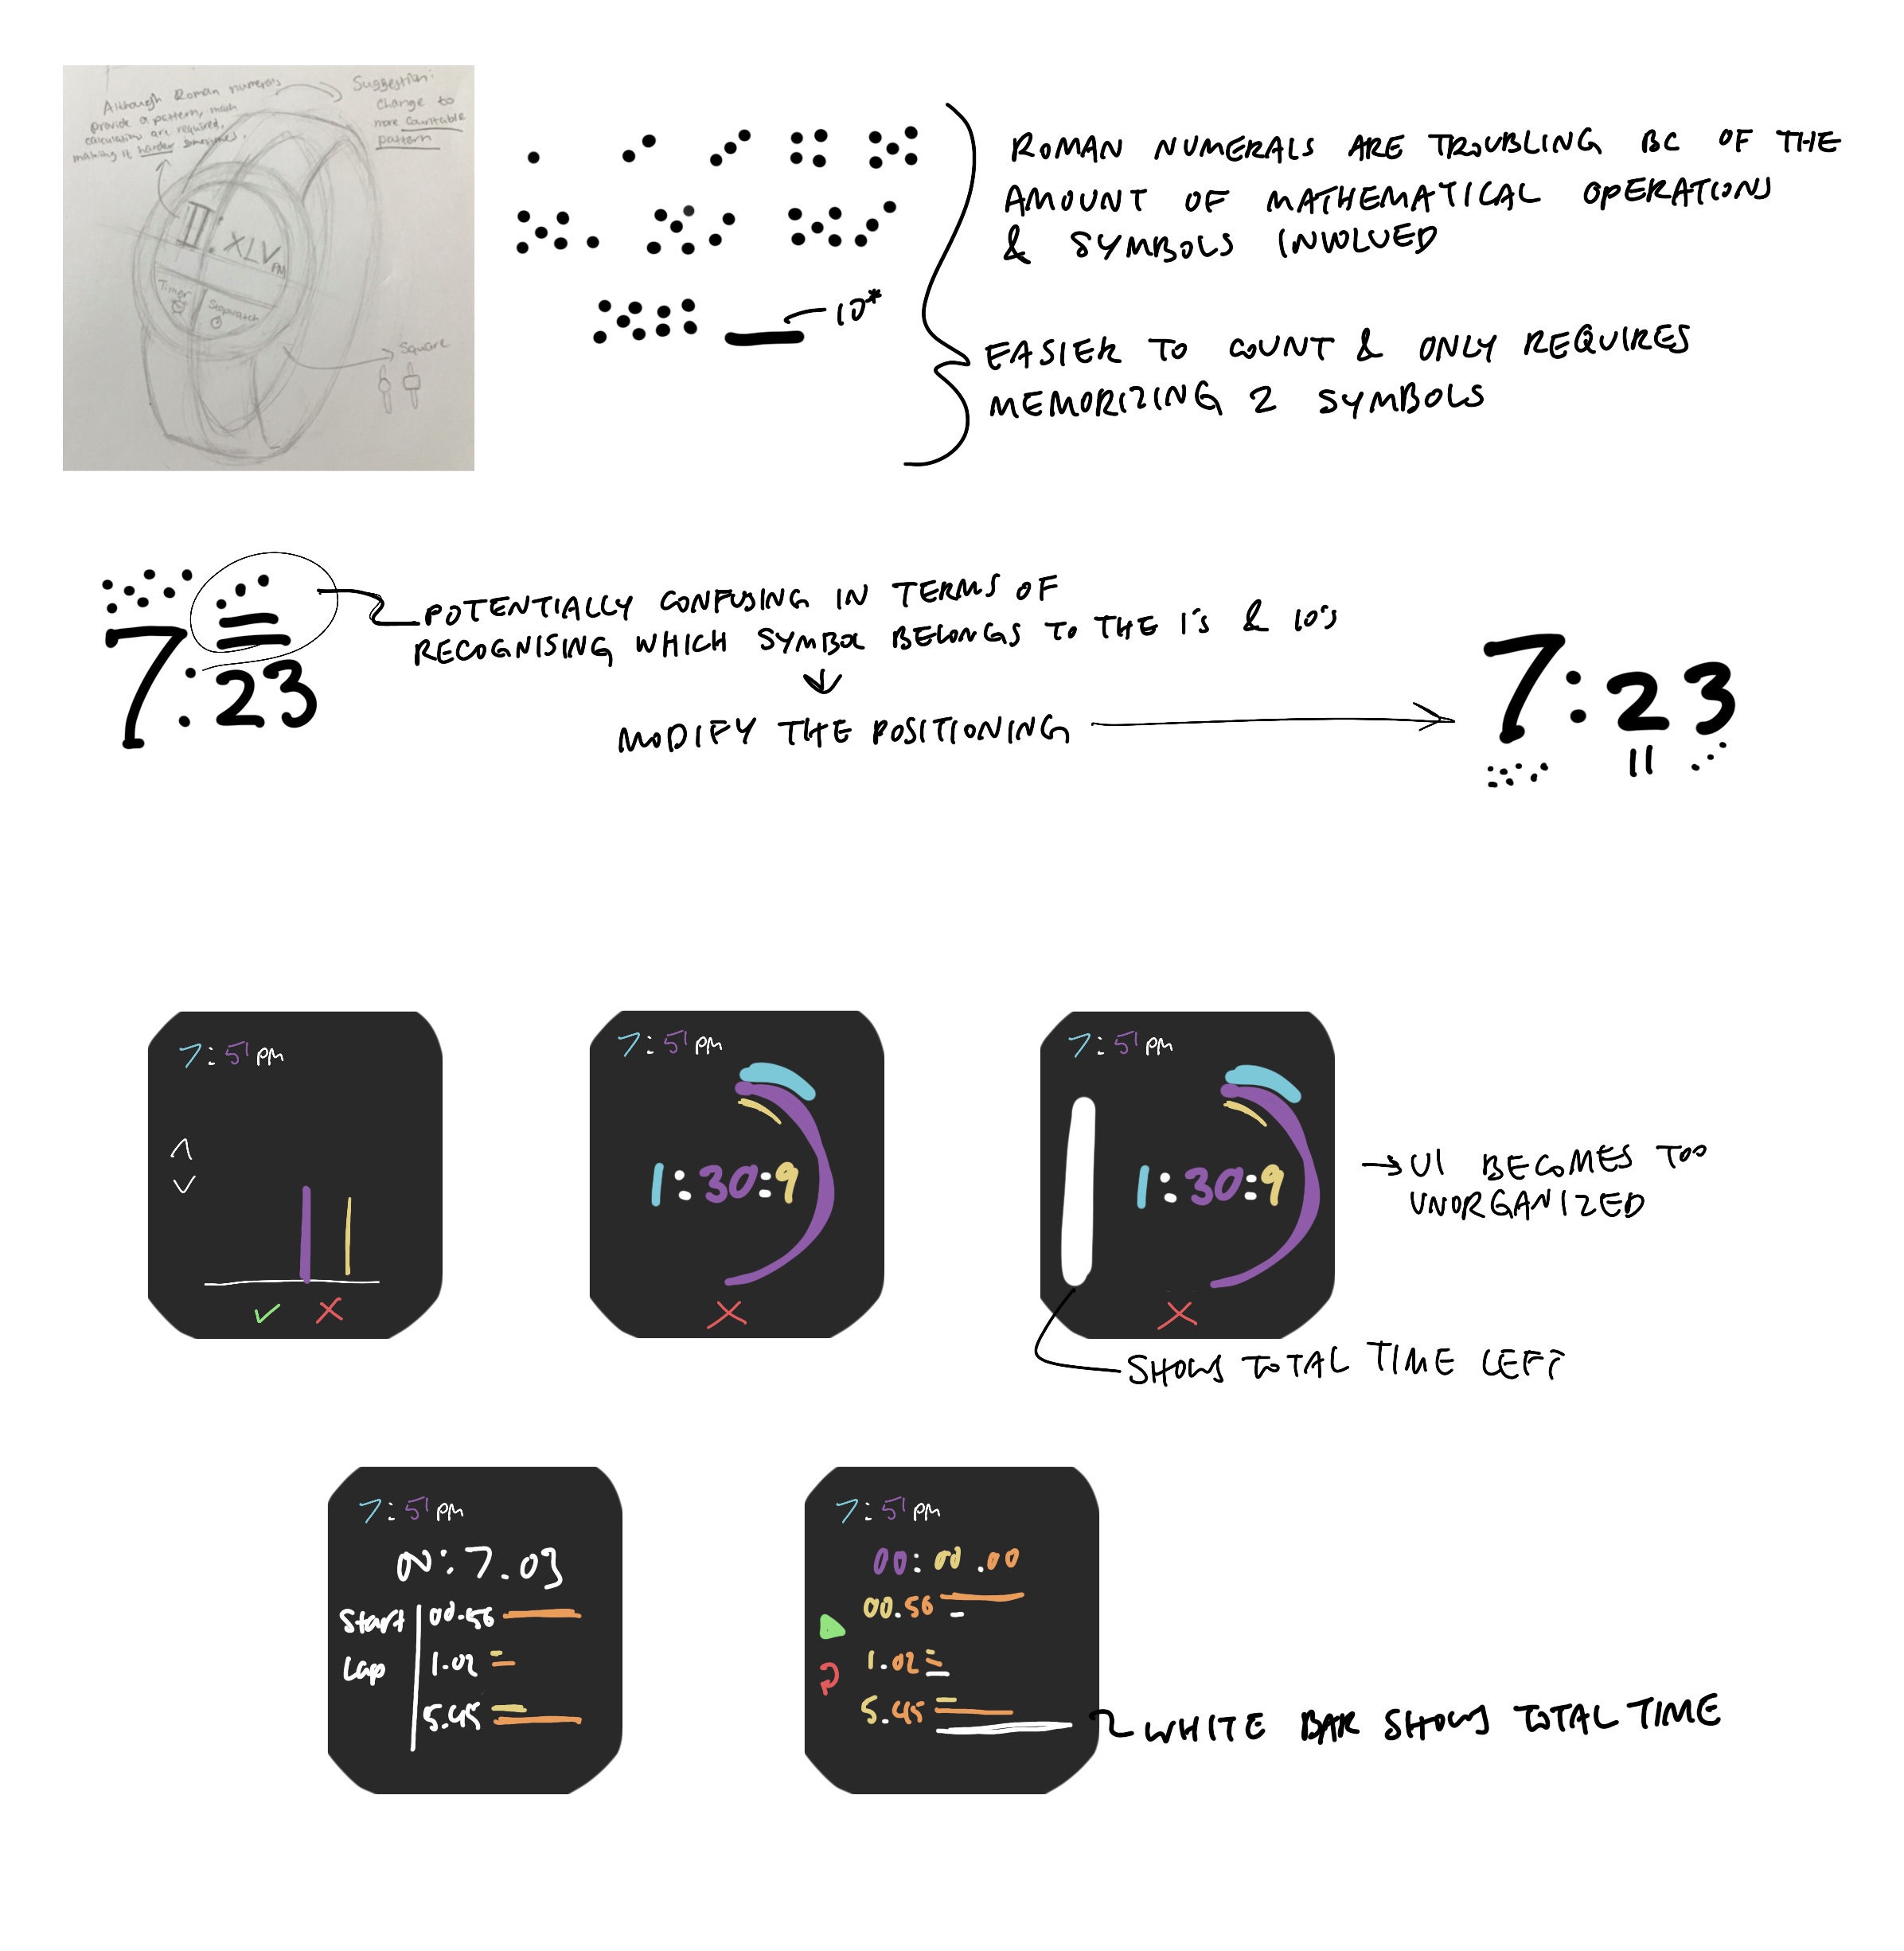 Although Roman numerals
provide a pattern, math
calculation are required,
making it harder sometimes.
Suggestion:
change to
more countable
pattern
II:XLV PM
Timer
Stopwatch
Square
10*
ROMAN NUMERALS ARE TROUBLING BC OF THE
AMOUNT OF MATHEMATICAL OPERATIONS
& SYMBOLS INVOLVED
EASIER TO COUNT & ONLY REQUIRES
MEMORIZING 2 SYMBOLS
7:23
POTENTIALLY CONFUSING IN TERMS OF
RECOGNISING WHICH SYMBOL BELONGS TO THE 1's & 10's
MODIFY THE POSITIONING
7:23
7:51 PM
7:51 PM
1:30:9
7:51 PM
1:30:9
UI BECOMES TOO
UNORGANIZED
SHOWS TOTAL TIME LEFT
7:51 PM
00:7.03
Start
Lap
00.56
1.02
5.45
7:51 PM
00:00.00
00.56
1.02
5.45
WHITE BAR SHOWS TOTAL TIME